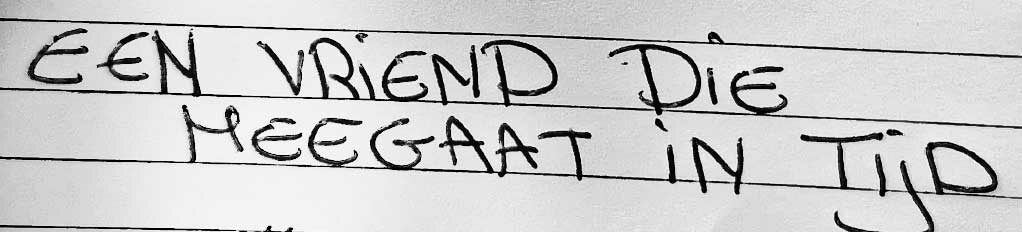 EEN VRiEND DiE
MEEGAAT iN TijD